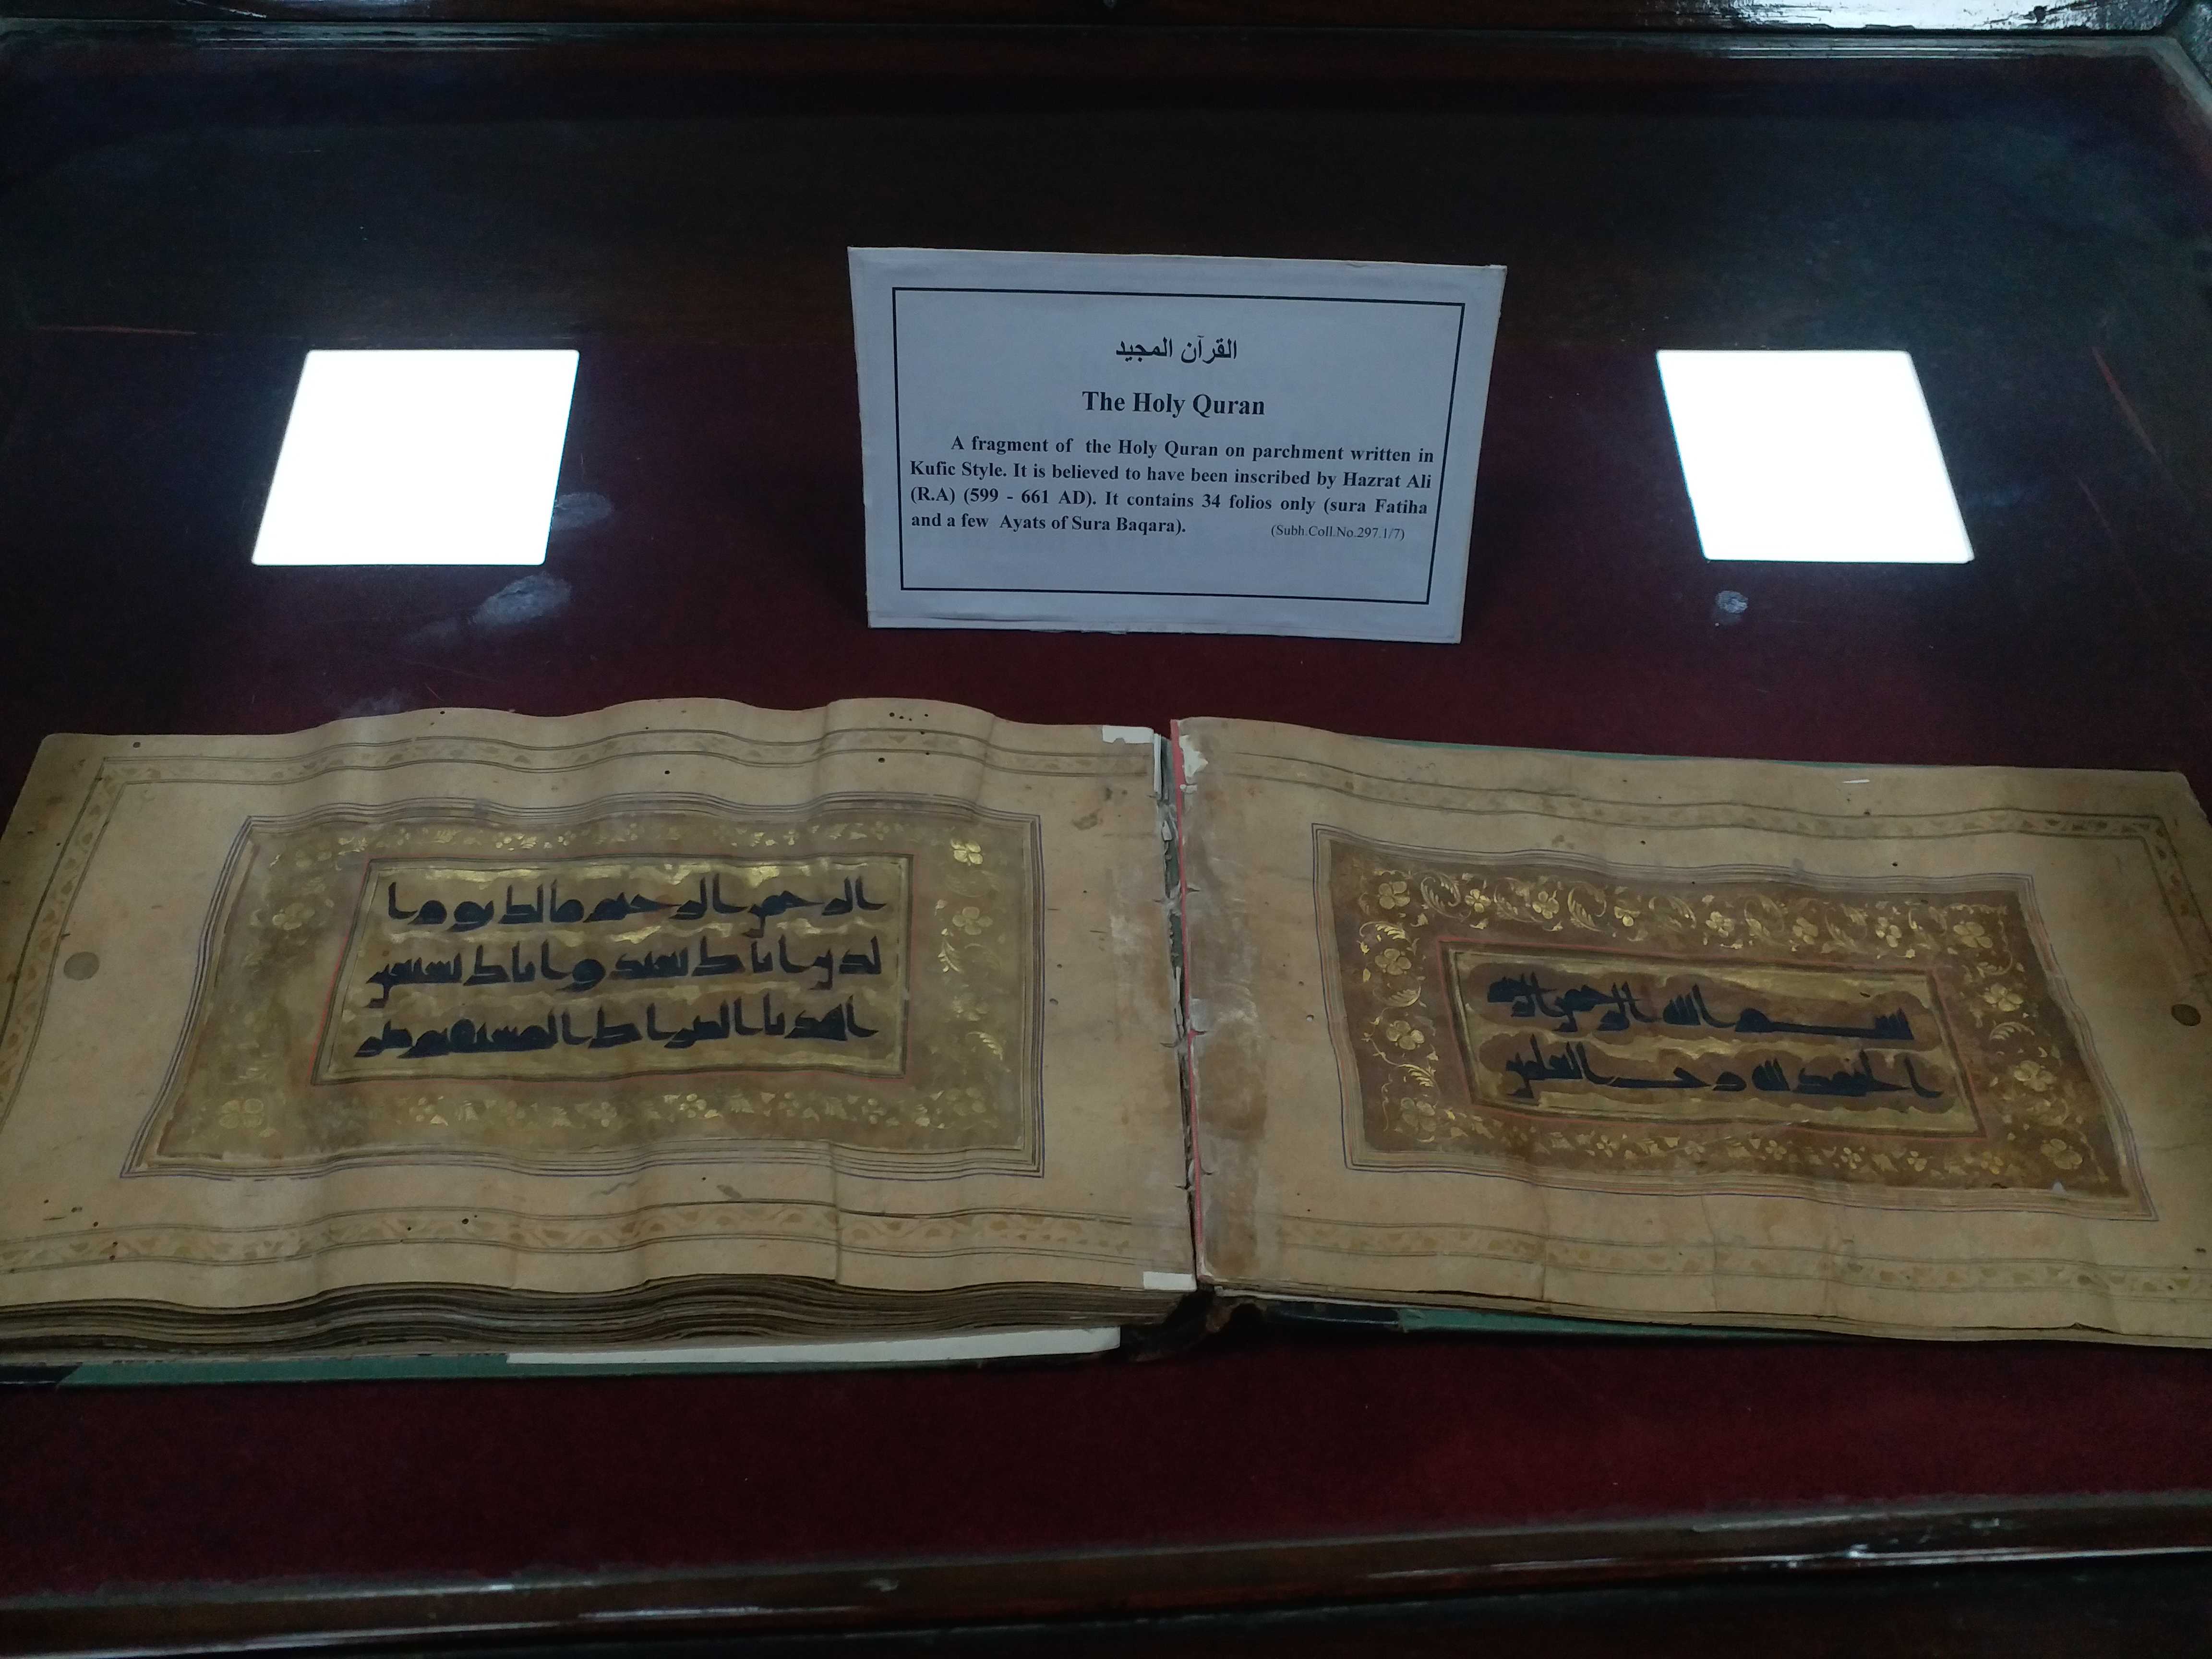 القرآن المجيد
The Holy Quran
A fragment of the Holy Quran on parchment written in
Kufic Style. It is believed to have been inscribed by Hazrat Ali
(R.A) (599 - 661 AD). It contains 34 folios only (sura Fatiha
and a few Ayats of Sura Baqara).
(Subh.Coll.No.297.1/7)
بسم الله الرحمن الرحيم
الحمد لله رب العلمين
الرحمن الرحيم ملك يوم ا
لدين اياك نعبد واياك نستعين
اهدنا الصراط المستقيم صر